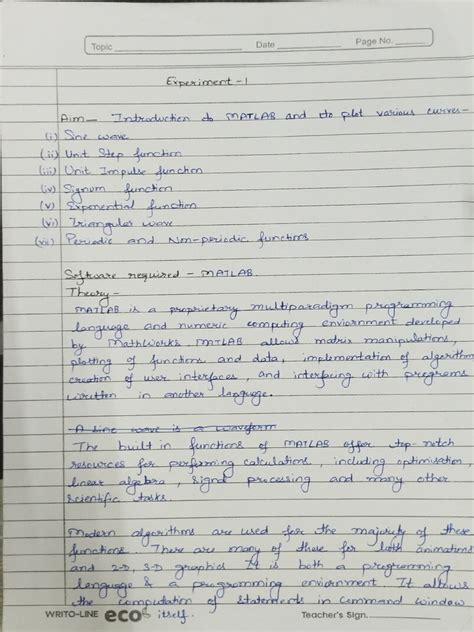 Topic Date Page No.
Experiment - 1
Aim - Introduction to MATLAB and to plot various curves -
(i) Sine wave
(ii) Unit Step function
(iii) Unit Impulse function
(iv) Signum function
(v) Exponential function
(vi) Triangular wave
(vii) Periodic and Non-periodic functions
Software required - MATLAB.
Theory -
MATLAB is a proprietary multiparadigm programming
language and numeric computing enviornment developed
by MathWorks. MATLAB allows matrix manipulations,
plotting of functions and data, implementation of algorithm
creation of user interfaces, and interfacing with programs
written in another language.
A sine wave is a waveform
The built in functions of MATLAB offer top-notch
resources for performing calculations, including optimisation
linear algebra, signal processing and many other
scientific tasks.
Modern algorithms are used for the majority of these
functions. There are many of those for both animations
and 2-D, 3-D graphics It is both a programming
language & a programming enviornment. It allows
the computation of statements in command window
itself.
WRITO-LINE eco Teacher's Sign.